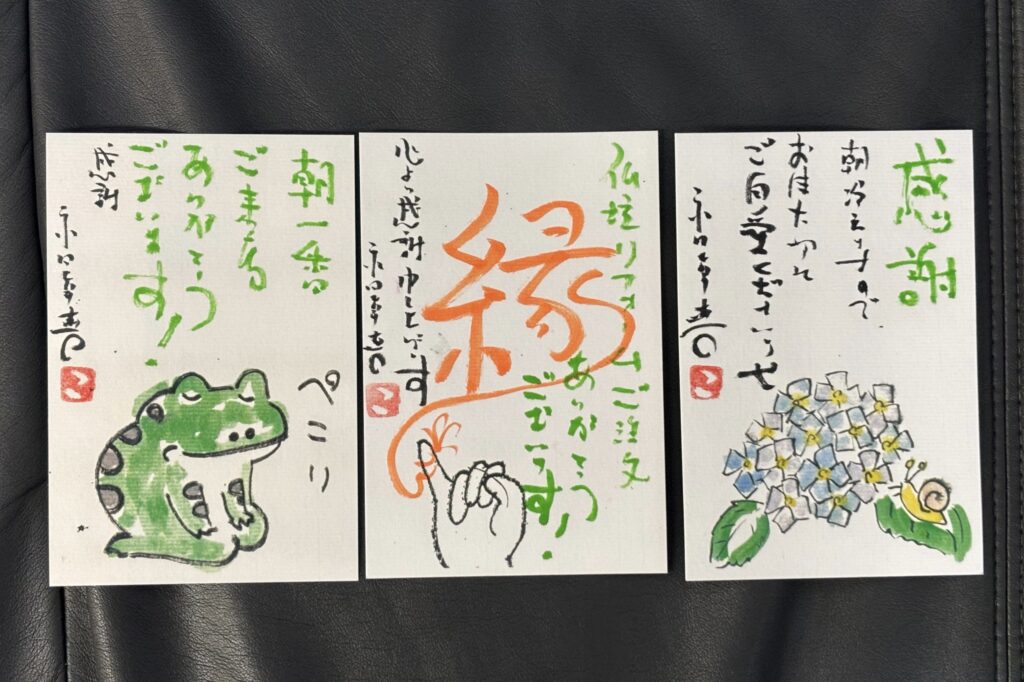 朝一番の
ご来店
ありがとう
ございます!
感謝
ぺこり
仏壇リフォームご注文
ありがとう
ございます!
縁
心より感謝申し上げます
感謝。
朝夕冷えますので
お体大切に
ご自愛くださいませ